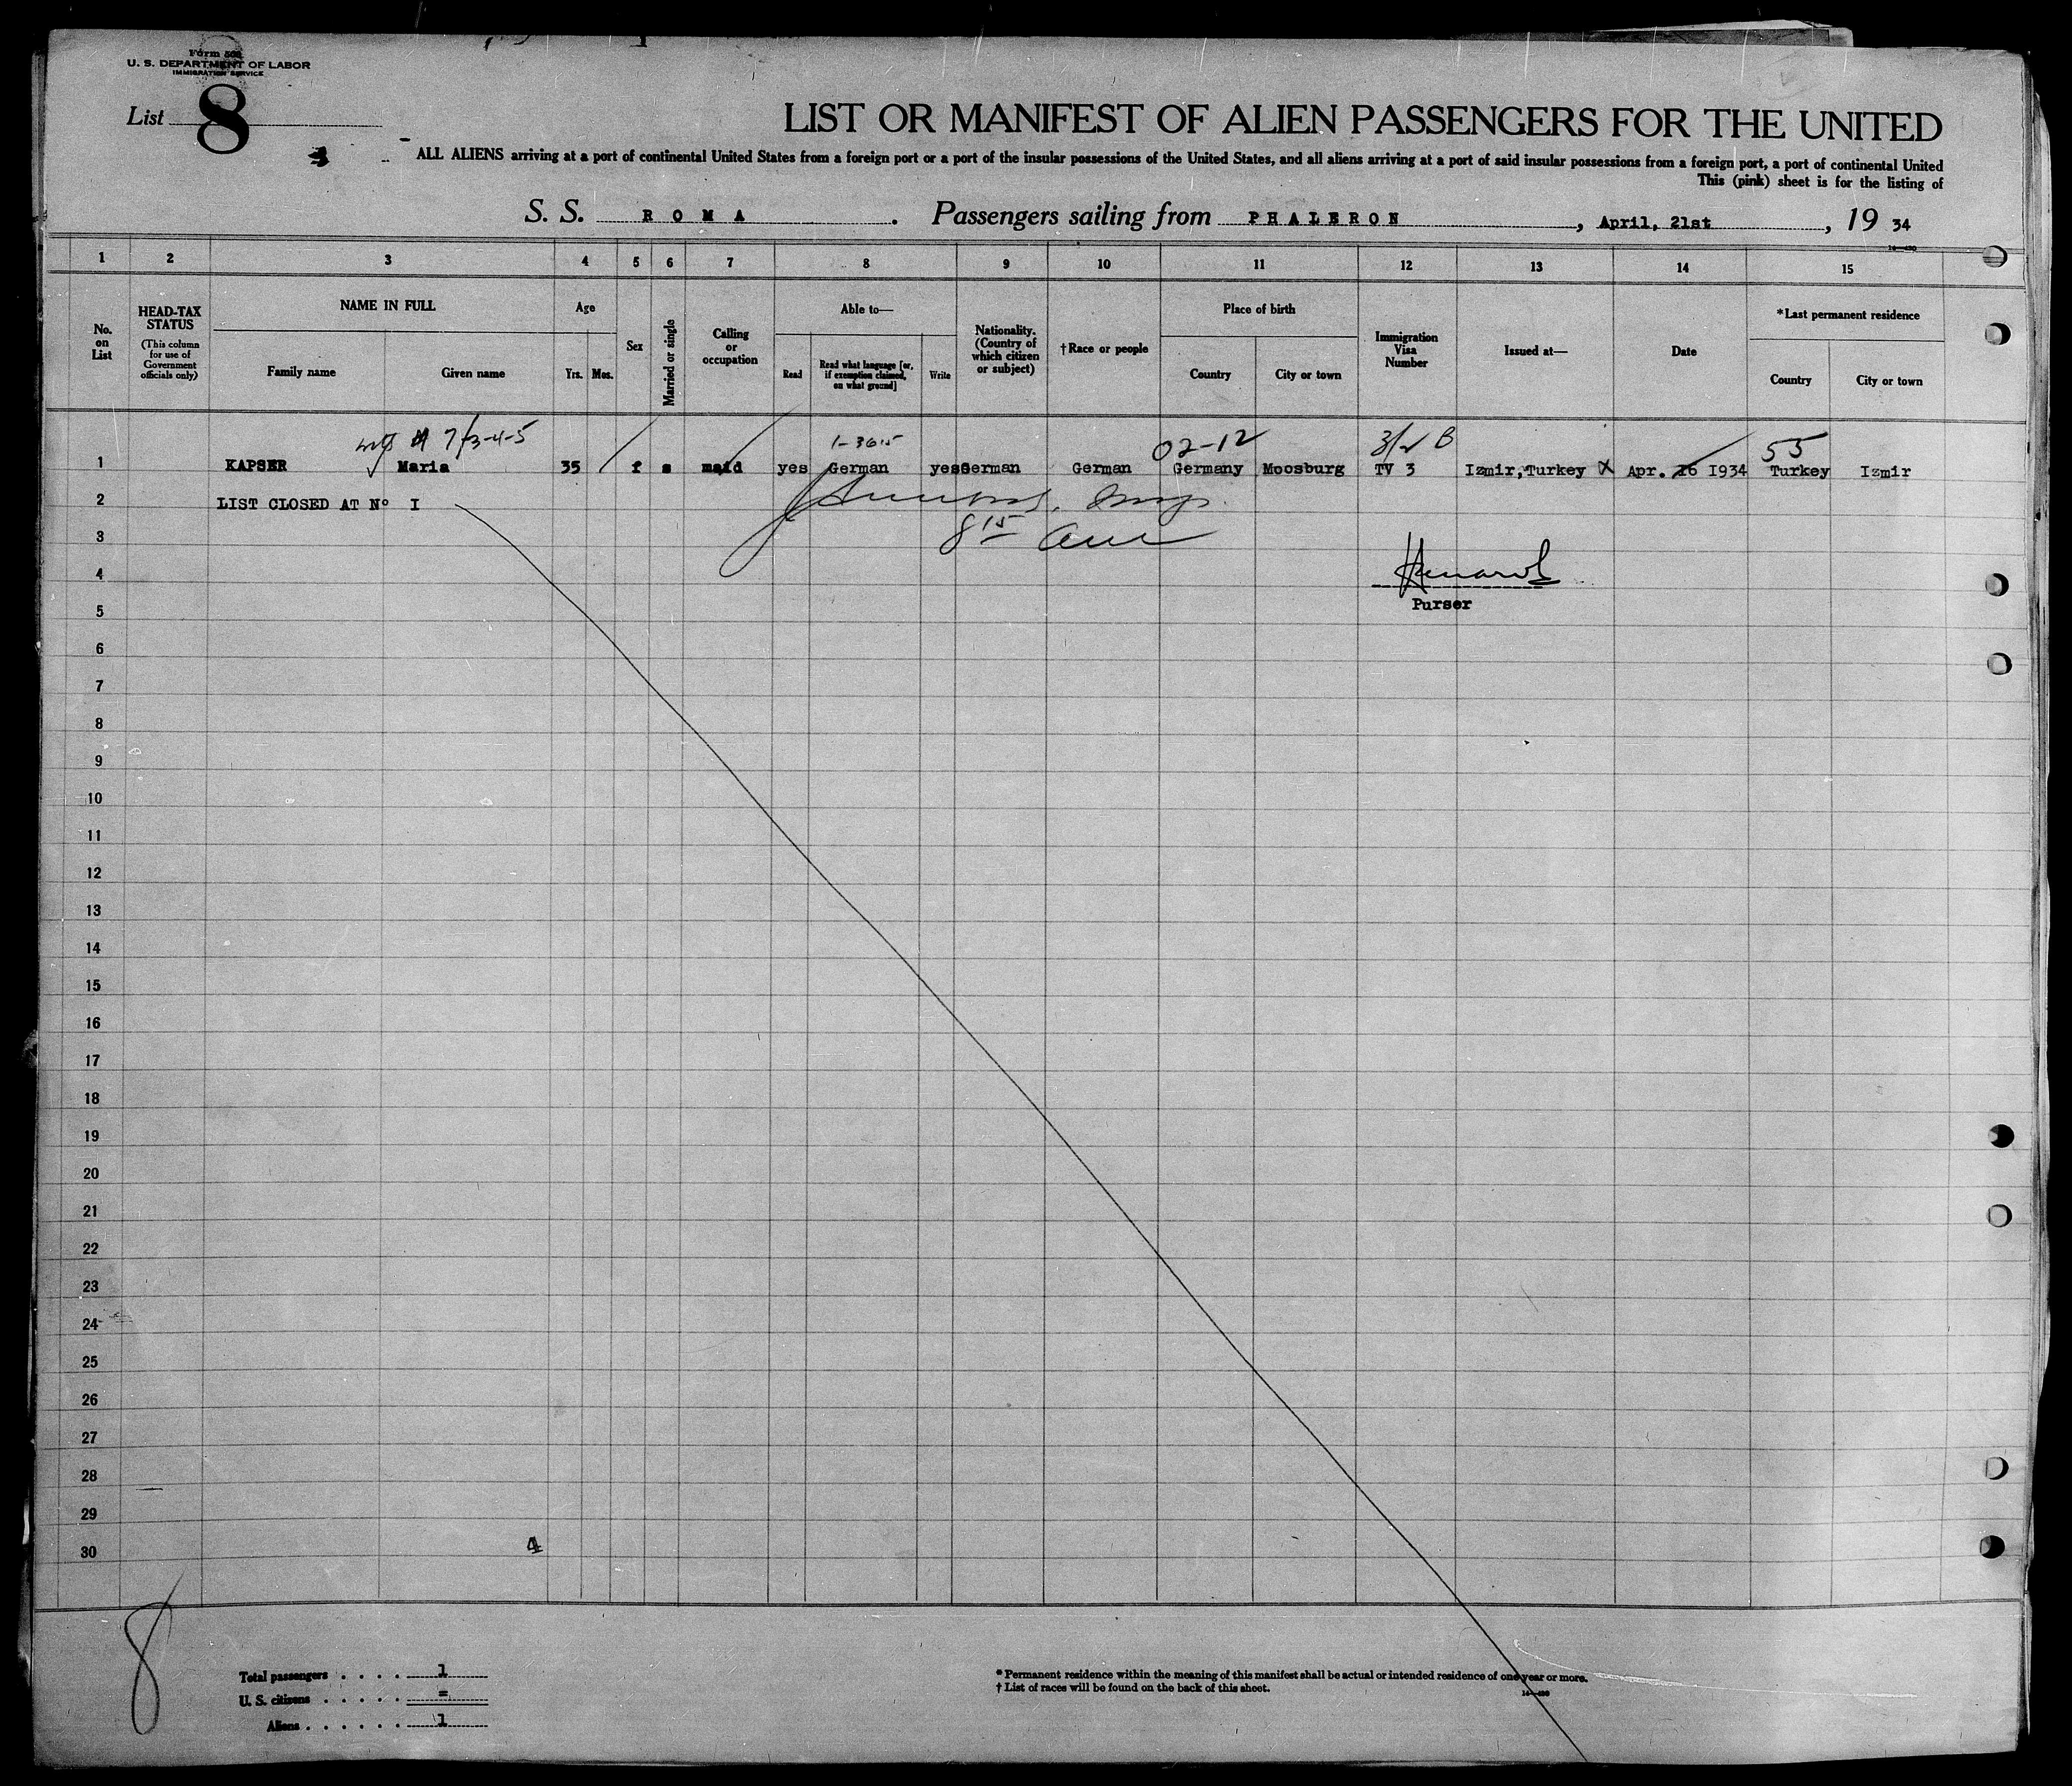 Form 500
U. S. DEPARTMENT OF LABOR
IMMIGRATION SERVICE
List 8
LIST OR MANIFEST OF ALIEN PASSENGERS FOR THE UNITED
ALL ALIENS arriving at a port of continental United States from a foreign port or a port of the insular possessions of the United States, and all aliens arriving at a port of said insular possessions from a foreign port, a port of continental United
This (pink) sheet is for the listing of
S. S. ROMA. Passengers sailing from PHALERON, April, 21st, 19 34
1 2 3 4 5 6 7 8 9 10 11 12 13 14 15
No. on List
HEAD-TAX STATUS
(This column for use of Government officials only)
NAME IN FULL
Family name Given name
Age
Yrs. Mos.
Sex
Married or single
Calling or occupation
Able to—
Read
Read what language [or, if exemption claimed, on what ground]
Write
Nationality. (Country of which citizen or subject)
†Race or people
Place of birth
Country City or town
Immigration Visa Number
Issued at—
Date
*Last permanent residence
Country City or town
7/3-4-5 02-12 55
1 KAPSER Maria 35 f s maid yes German yes German German Germany Moosburg TV 3 Izmir,Turkey Apr. 16 1934 Turkey Izmir
2 LIST CLOSED AT Nº I
3
4
5
Purser
6
7
8
9
10
11
12
13
14
15
16
17
18
19
20
21
22
23
24
25
26
27
28
29
30
4
8
Total passengers . . . . 1
U. S. citizens . . . . . =
Aliens . . . . . . 1
* Permanent residence within the meaning of this manifest shall be actual or intended residence of one year or more.
† List of races will be found on the back of this sheet.